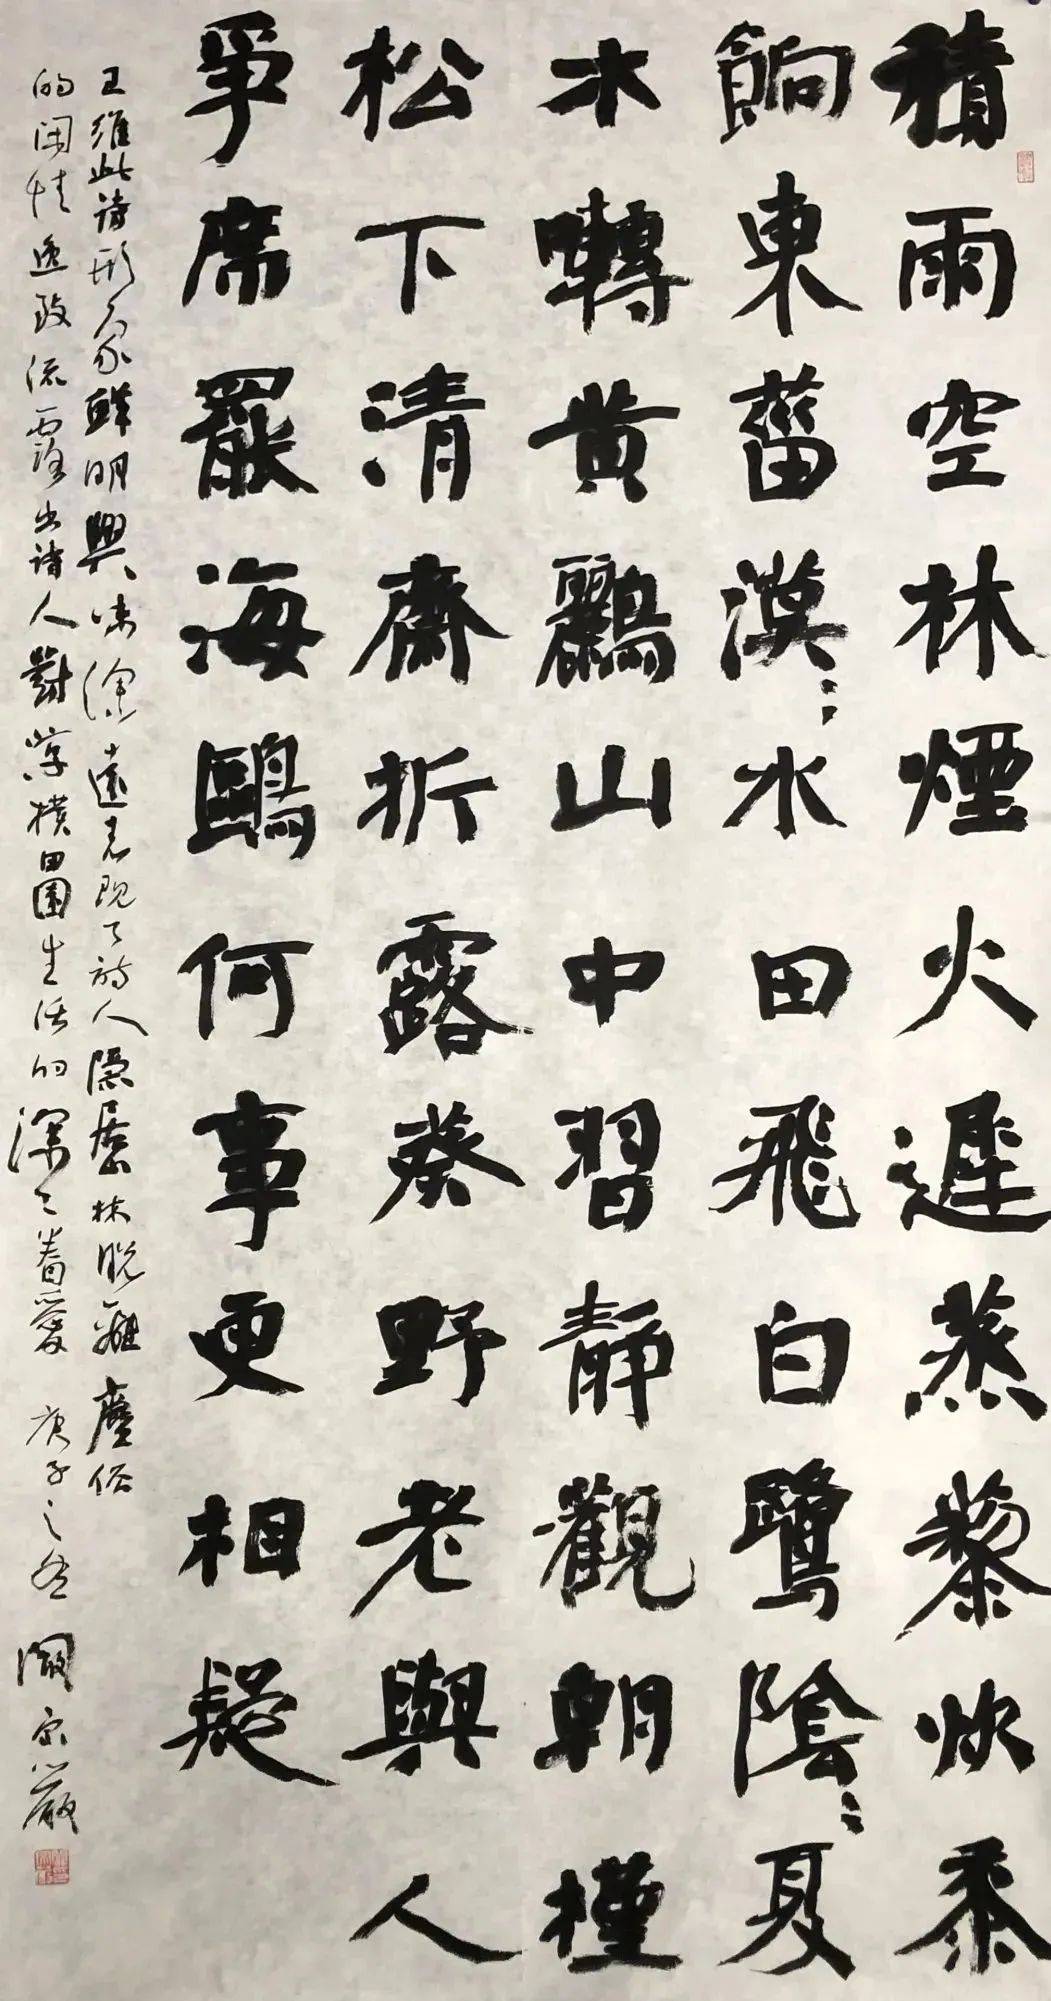 積雨空林煙火遲蒸黎炊黍
餉東菑漠々水田飛白鷺陰々夏
木囀黃鸝山中習靜觀朝槿
松下清齋折露葵野老與人
爭席罷海鷗何事更相疑
王維此詩形象鮮明興味深遠表現了詩人隱居山林脫離塵俗
的閑情逸致流露出詩人對淳樸田園生活的深々眷愛 庚子之